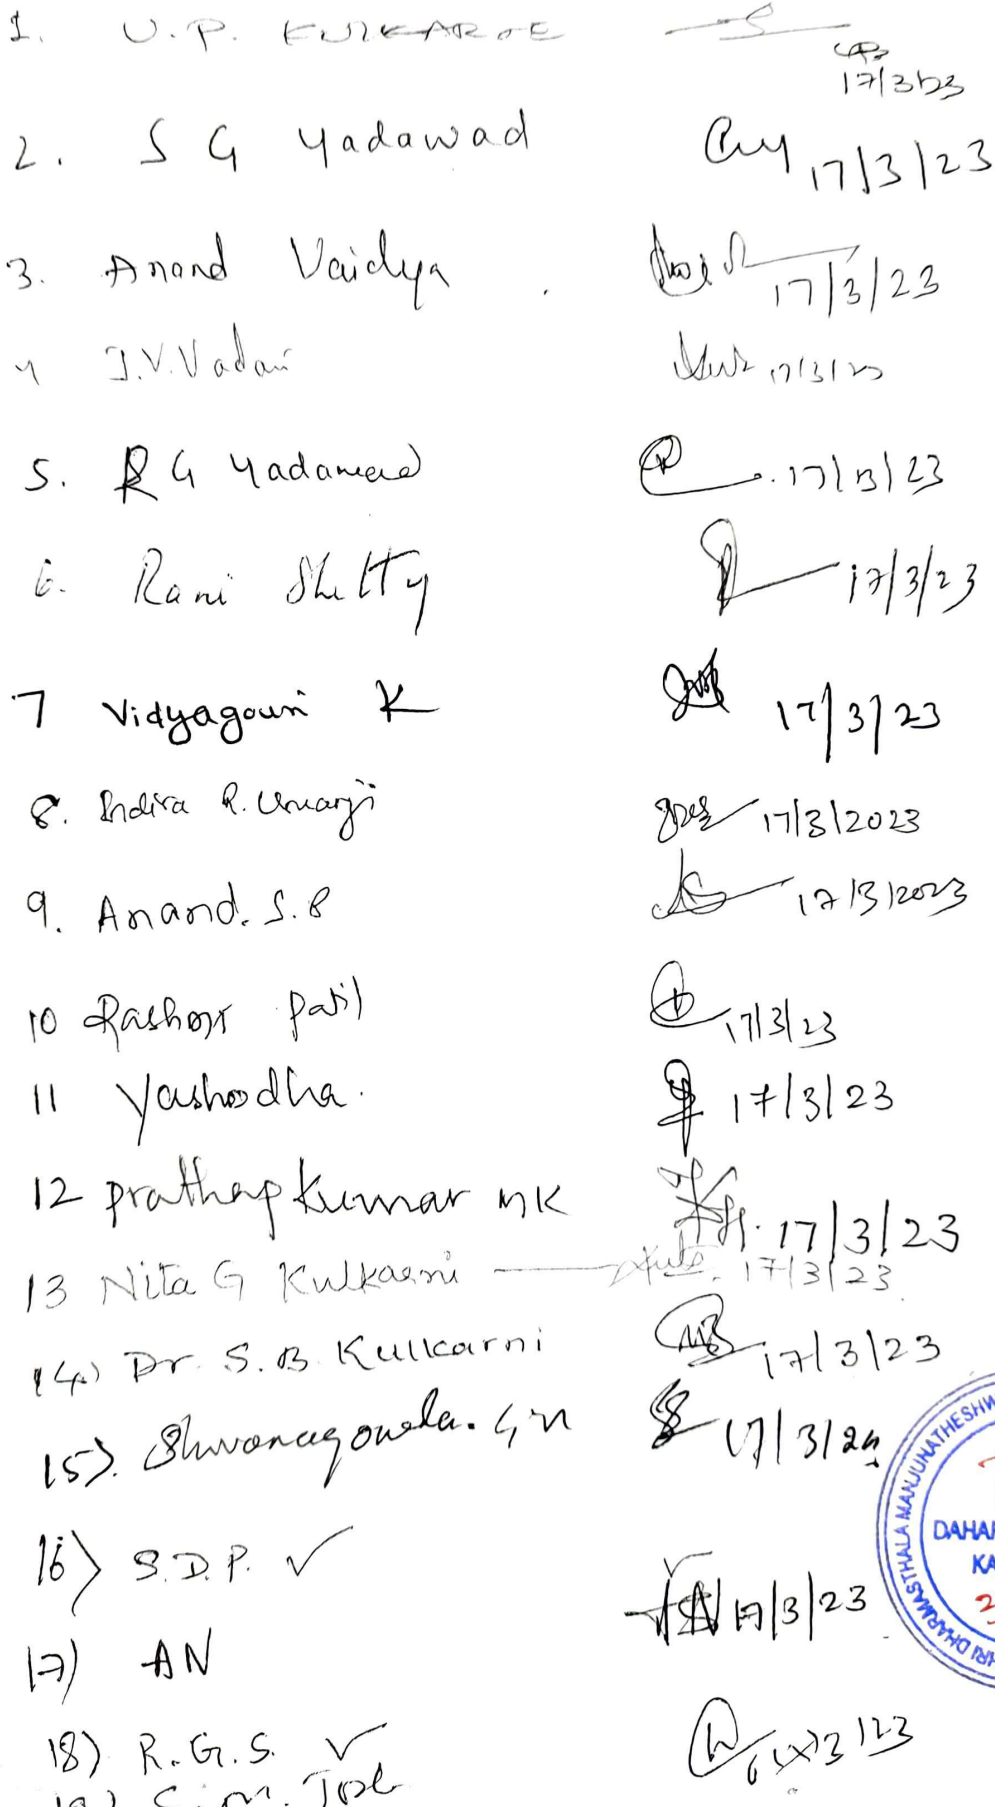 1. U.P. KULKARNI
17/3/23
2. S G Yadawad 17/3/23
3. Anand Vaidya . 17/3/23
4 J.V.Vadavi 17/3/23
5. R G Yadawad 17/3/23
6. Rani Shetty 17/3/23
7 Vidyagouri K 17/3/23
8. Indira R. Umarji 17/3/2023
9. Anand. S.P 17/3/2023
10 Rashmi Patil 17/3/23
11 Yashodha. 17/3/23
12 Prathap kumar MK 17/3/23
13 Nita G Kulkarni 17/3/23
14) Dr. S. B. Kulkarni 17/3/23
15). 17/3/23
16) S.D.P. ✓
17/3/23
17) AN
18) R.G.S. ✓ 3/23
19) S.M.
SHRI DHARMASTHALA MANJUNATHESHW